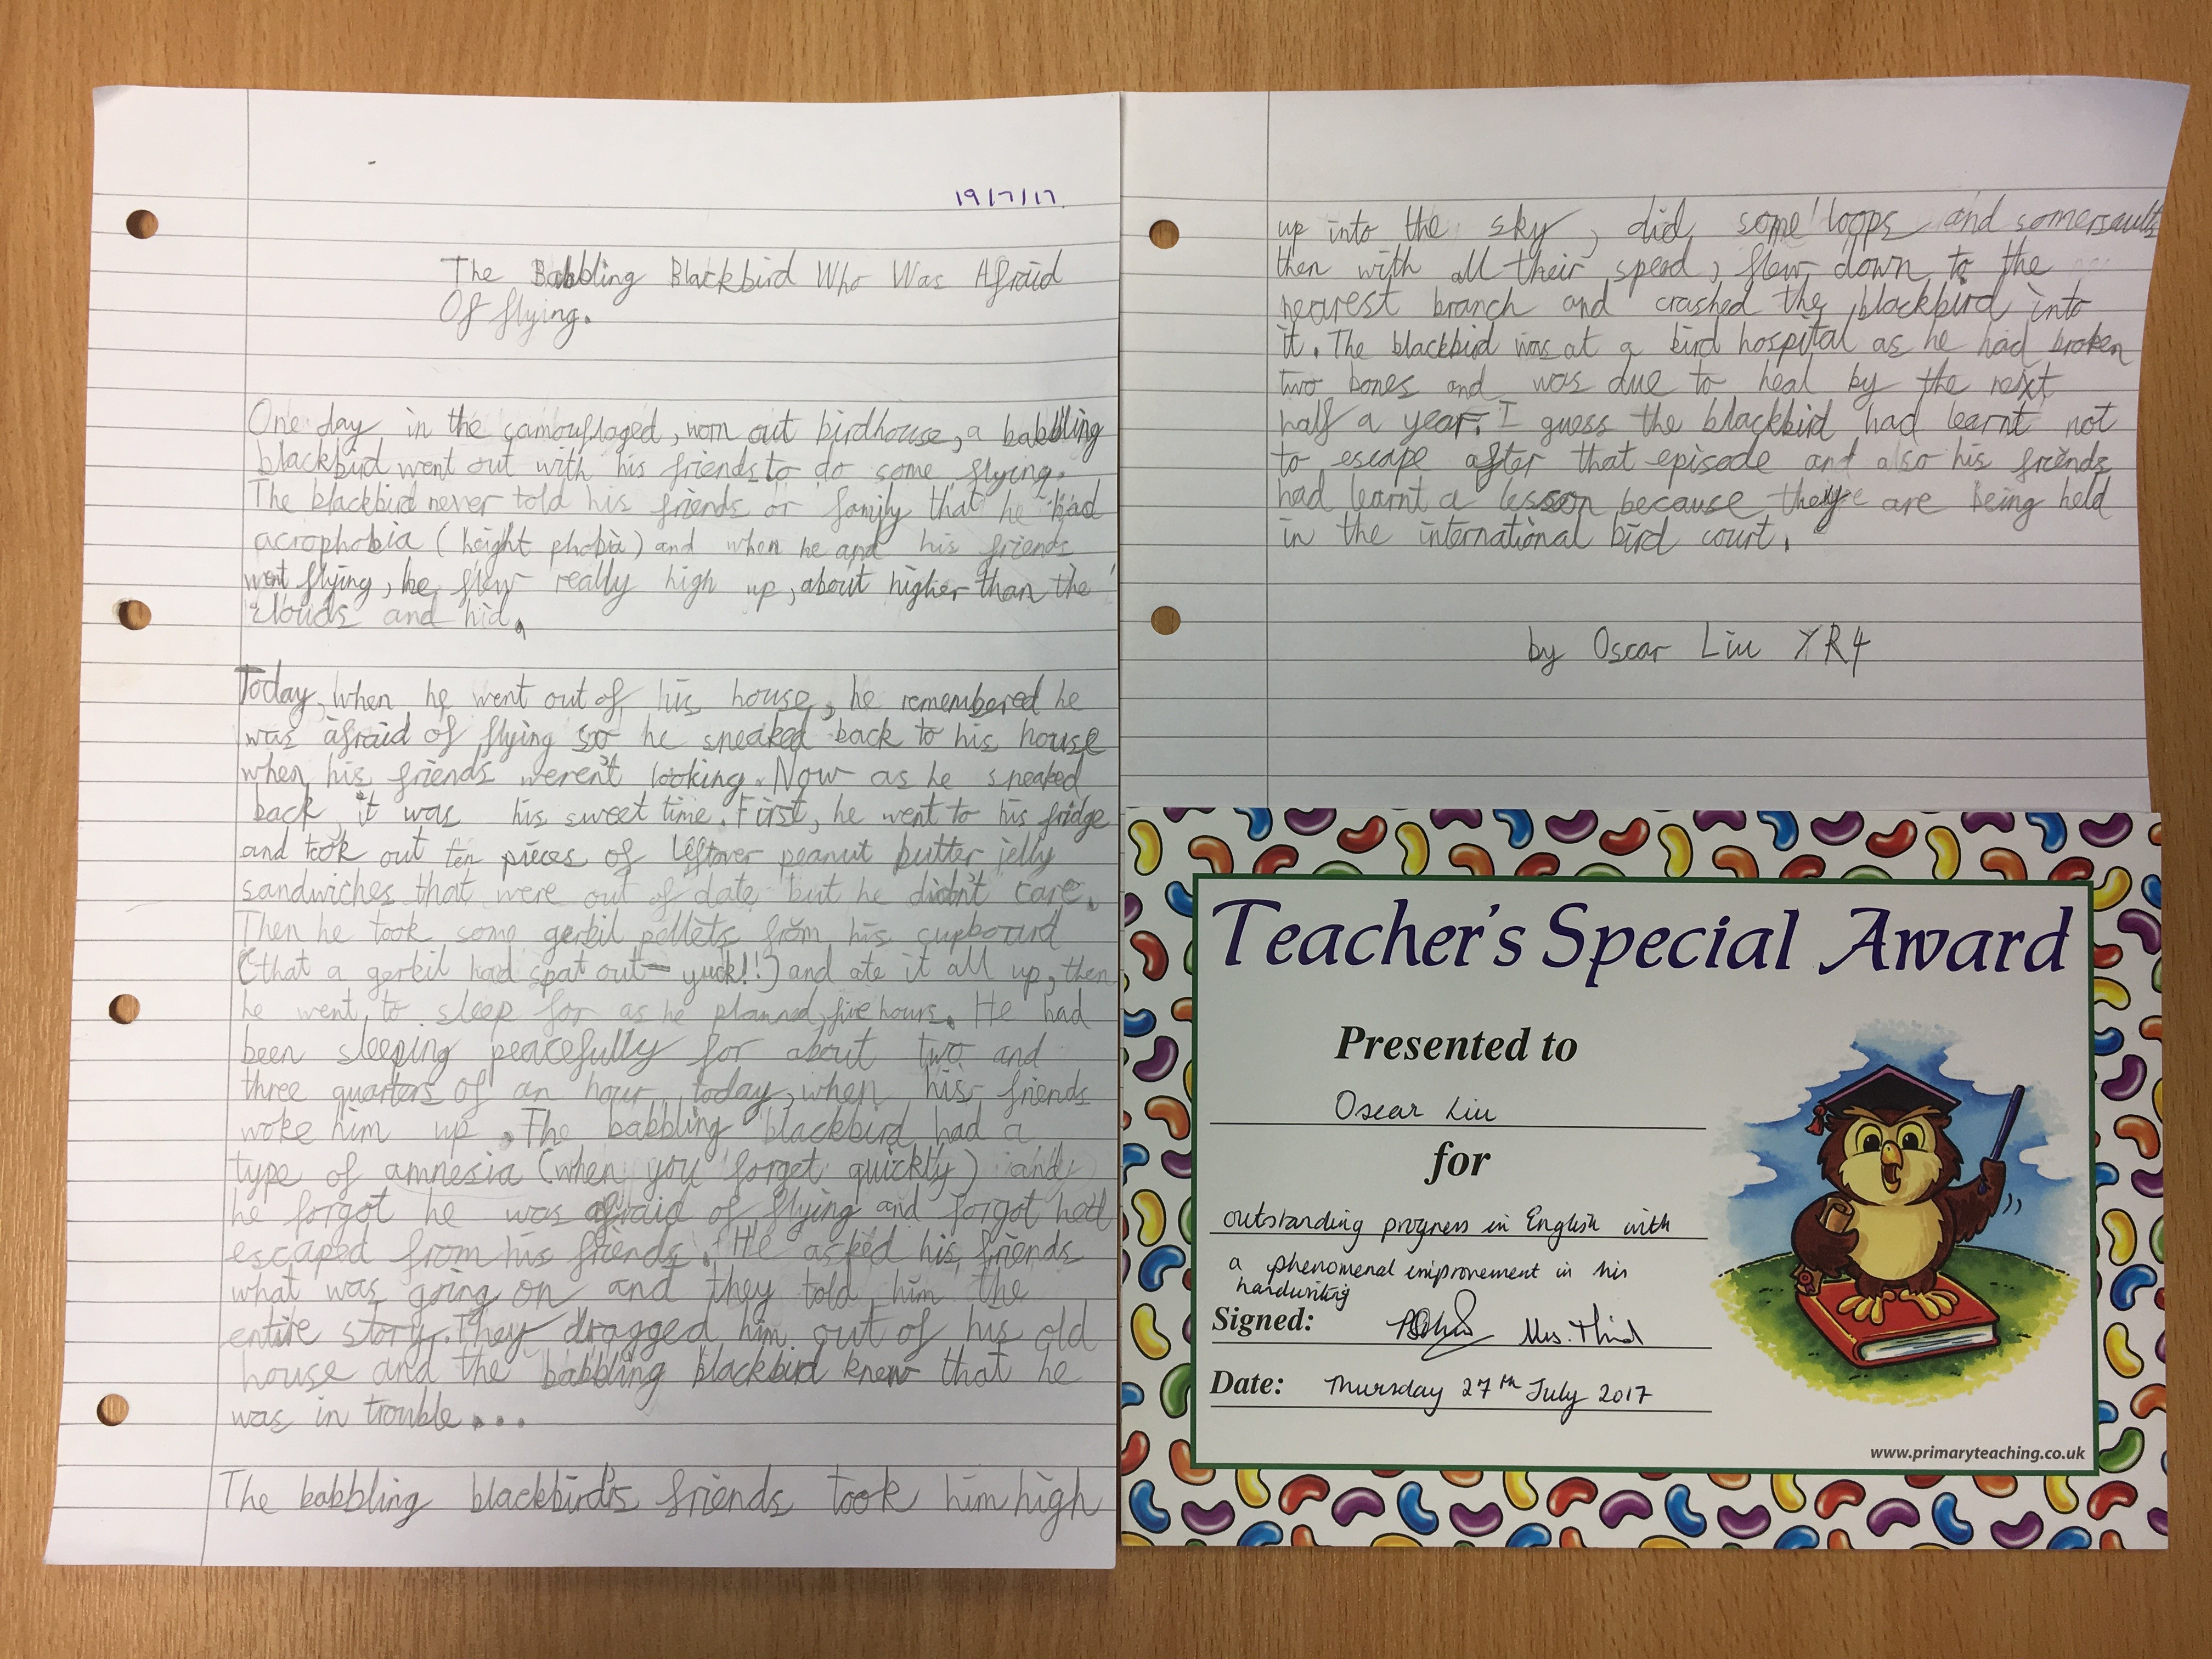 19/7/17.
The Babbling Blackbird Who Was Afraid
Of flying.
One day in the camouflaged, worn out birdhouse, a babbling
blackbird went out with his friends to do some flying.
The blackbird never told his friends or family that he had
acrophobia (height phobia) and when he and his friends
went flying, he flew really high up, about higher than the
clouds and hid.
Today, when he went out of his house, he remembered he
was afraid of flying so he sneaked back to his house
when his friends weren't looking. Now as he sneaked
back, it was his sweet time. First, he went to his fridge
and took out ten pieces of leftover peanut butter jelly
sandwiches that were out of date but he didn't care.
Then he took some gerbil pellets from his cupboard
(that a gerbil had spat out - yuck!!) and ate it all up, then
he went to sleep for as he planned, five hours. He had
been sleeping peacefully for about two and
three quarters of an hour today, when his friends
woke him up. The babbling blackbird had a
type of amnesia (when you forget quickly) and
he forgot he was afraid of flying and forgot he'd
escaped from his friends. He asked his friends
what was going on and they told him the
entire story. They dragged him out of his old
house and the babbling blackbird knew that he
was in trouble...
The babbling blackbird's friends took him high
up into the sky, did some loops and somersaults
then with all their speed, flew down to the
nearest branch and crashed the blackbird into
it. The blackbird was at a bird hospital as he had broken
two bones and was due to heal by the next
half a year. I guess the blackbird had learnt not
to escape after that episode and also his friends
had learnt a lesson because they are being held
in the international bird court.
by Oscar Liu YR4
Teacher's Special Award
Presented to
Oscar Liu
for
outstanding progress in English with
a phenomenal improvement in his
handwriting
Signed: Mrs. Thind
Date: Thursday 27th July 2017
www.primaryteaching.co.uk